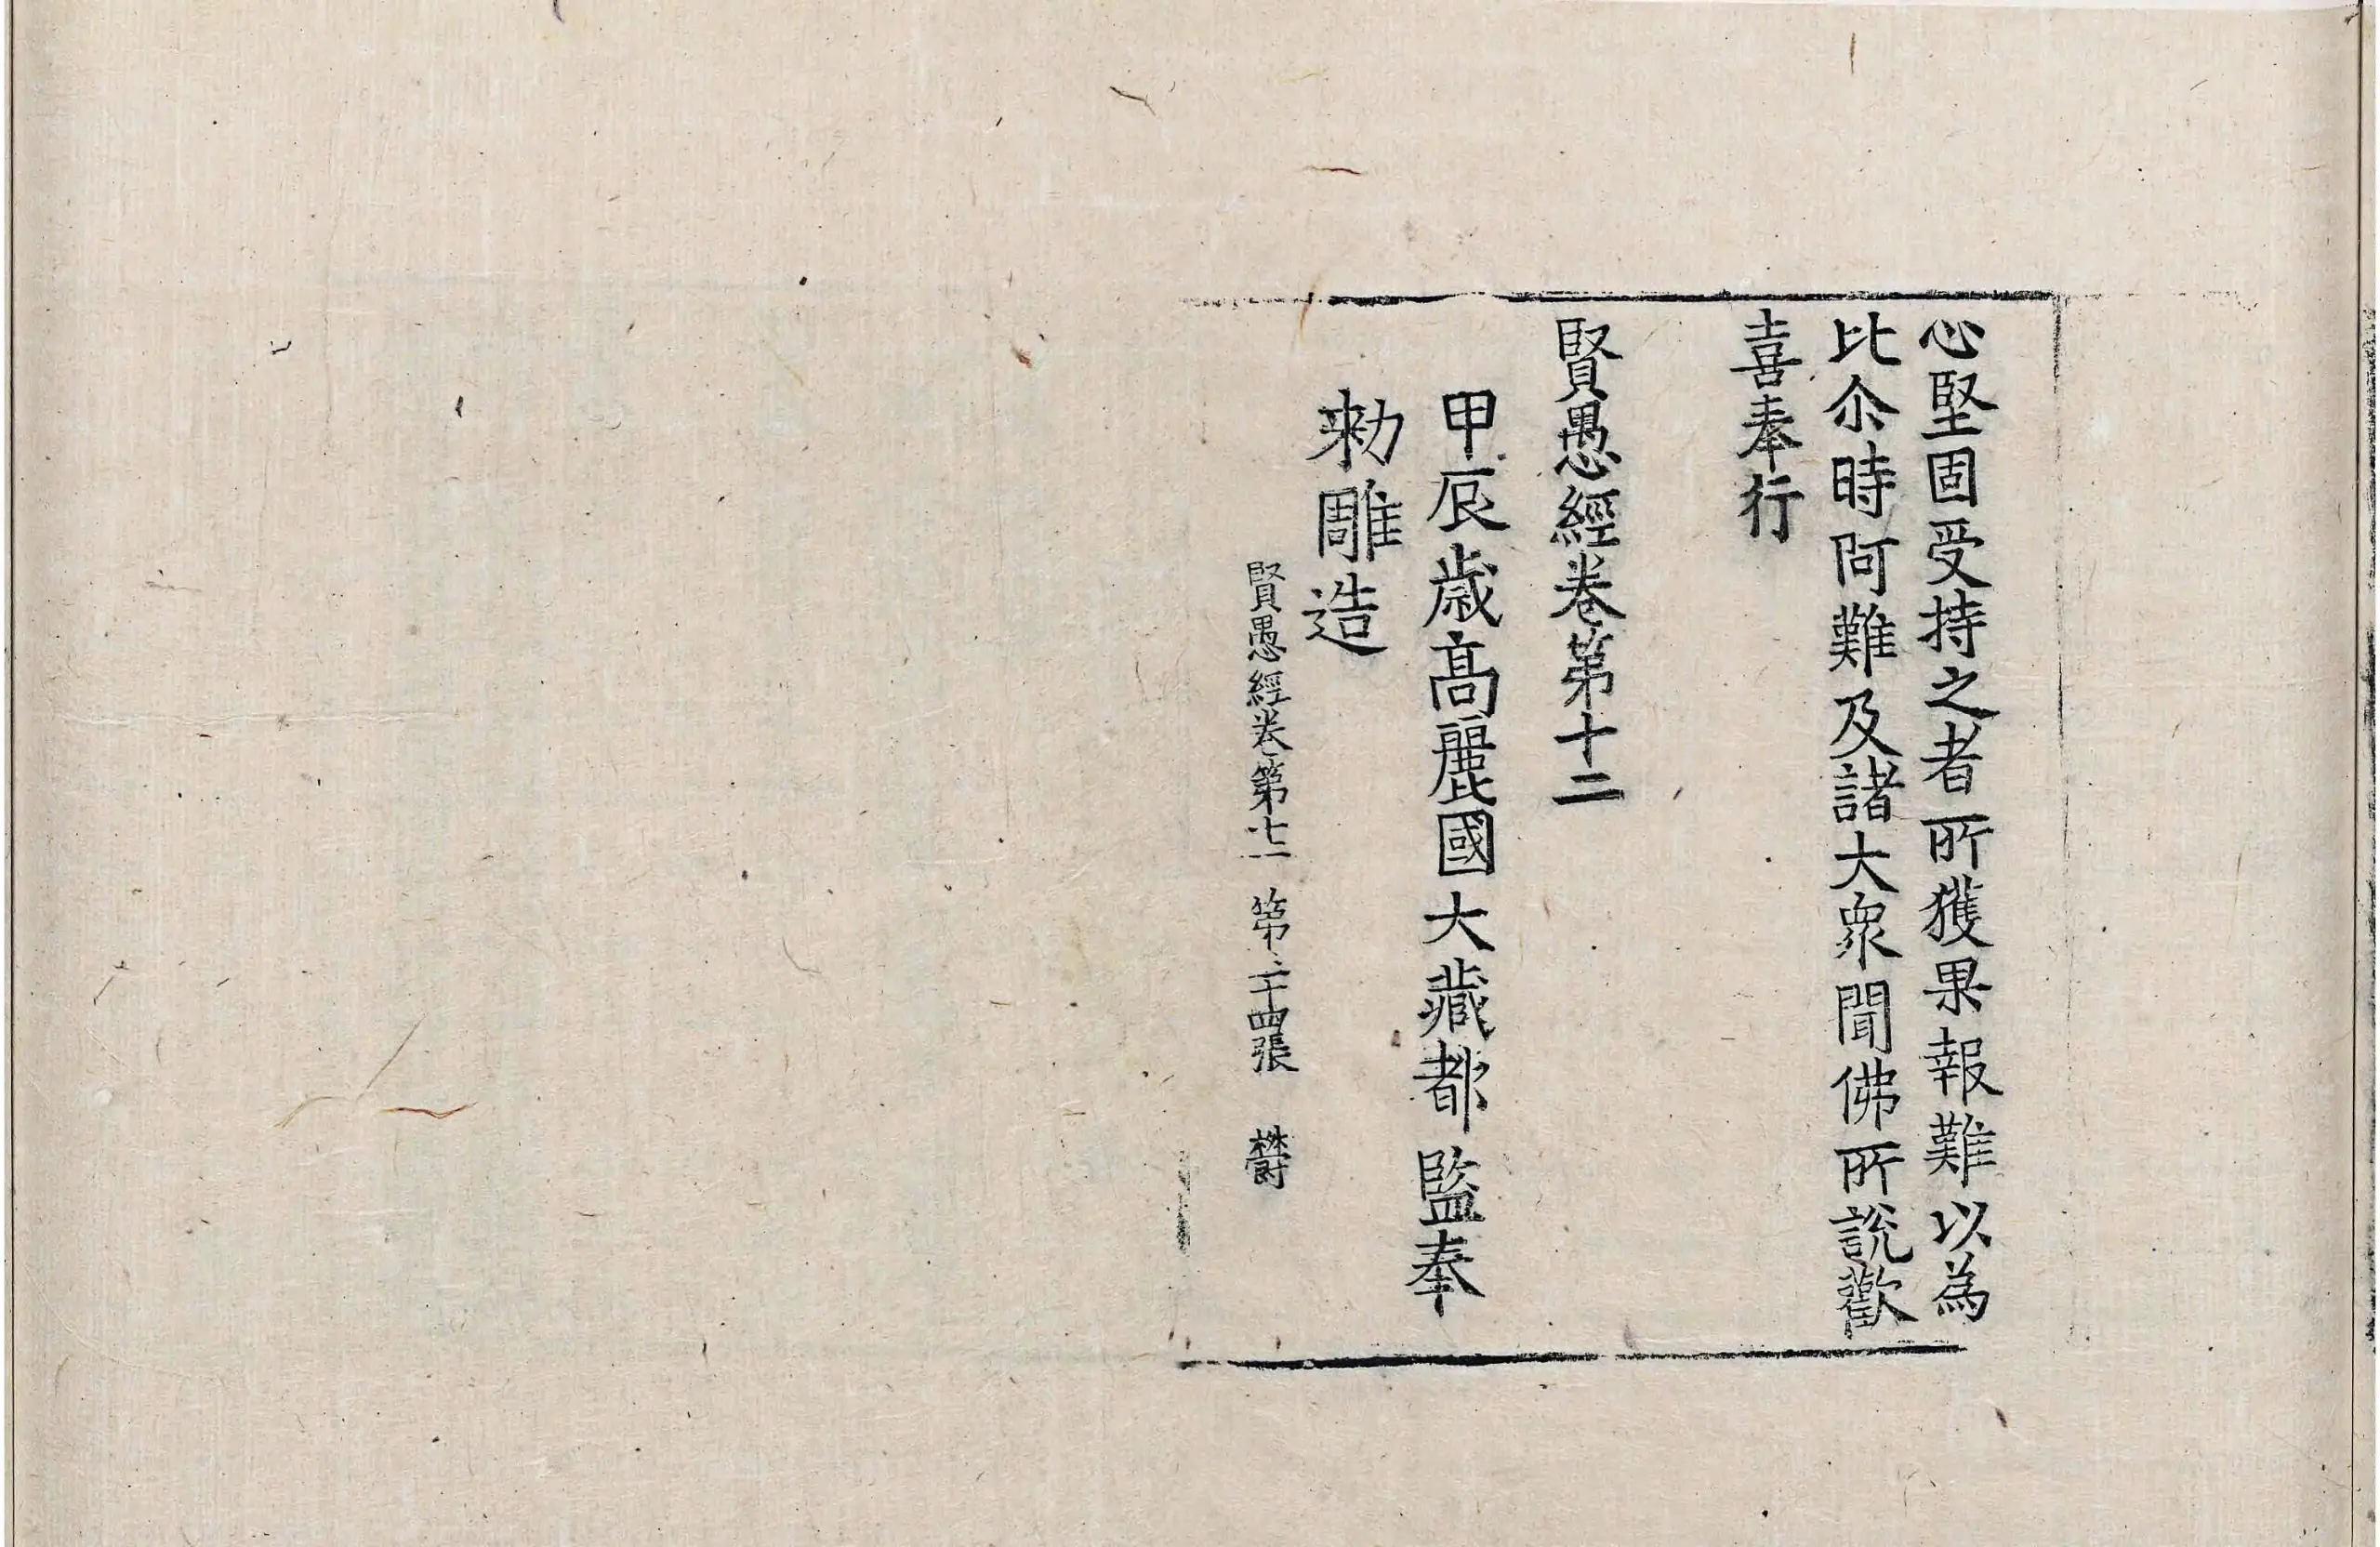 心堅固受持之者所獲果報難以為
比尒時阿難及諸大衆聞佛所說歡
喜奉行
賢愚經卷第十二
甲辰歲高麗國大藏都監奉
勑雕造
賢愚經卷第十二 第二十四張 欝